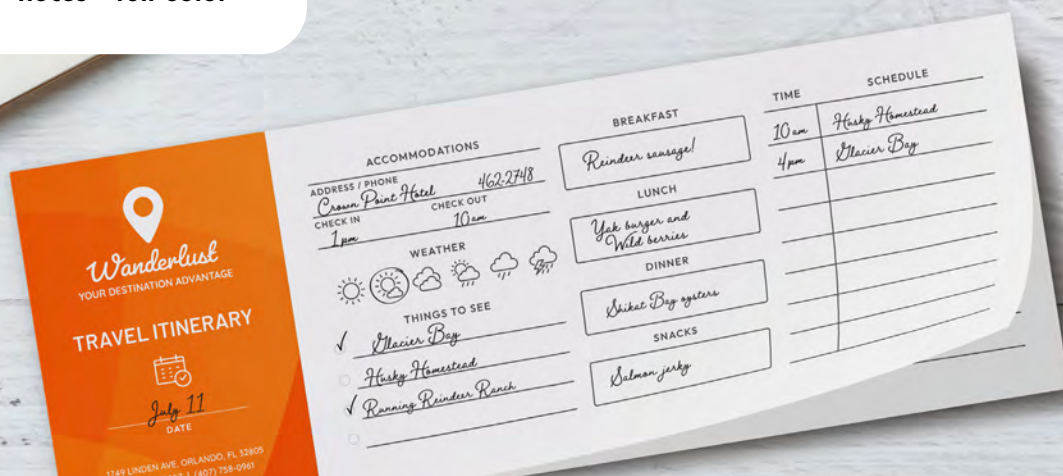 Wanderlust
YOUR DESTINATION ADVANTAGE
TRAVEL ITINERARY
July 11
DATE
1749 LINDEN AVE, ORLANDO, FL 32805
(407) 758-0961
ACCOMMODATIONS
ADDRESS / PHONE
Crown Point Hotel 462-2748
CHECK IN CHECK OUT
1pm 10am
WEATHER
THINGS TO SEE
Glacier Bay
Husky Homestead
Running Reindeer Ranch
BREAKFAST
Reindeer sausage!
LUNCH
Yak burger and
Wild berries
DINNER
Shikat Bay oysters
SNACKS
Salmon jerky
TIME SCHEDULE
10am Husky Homestead
4pm Glacier Bay